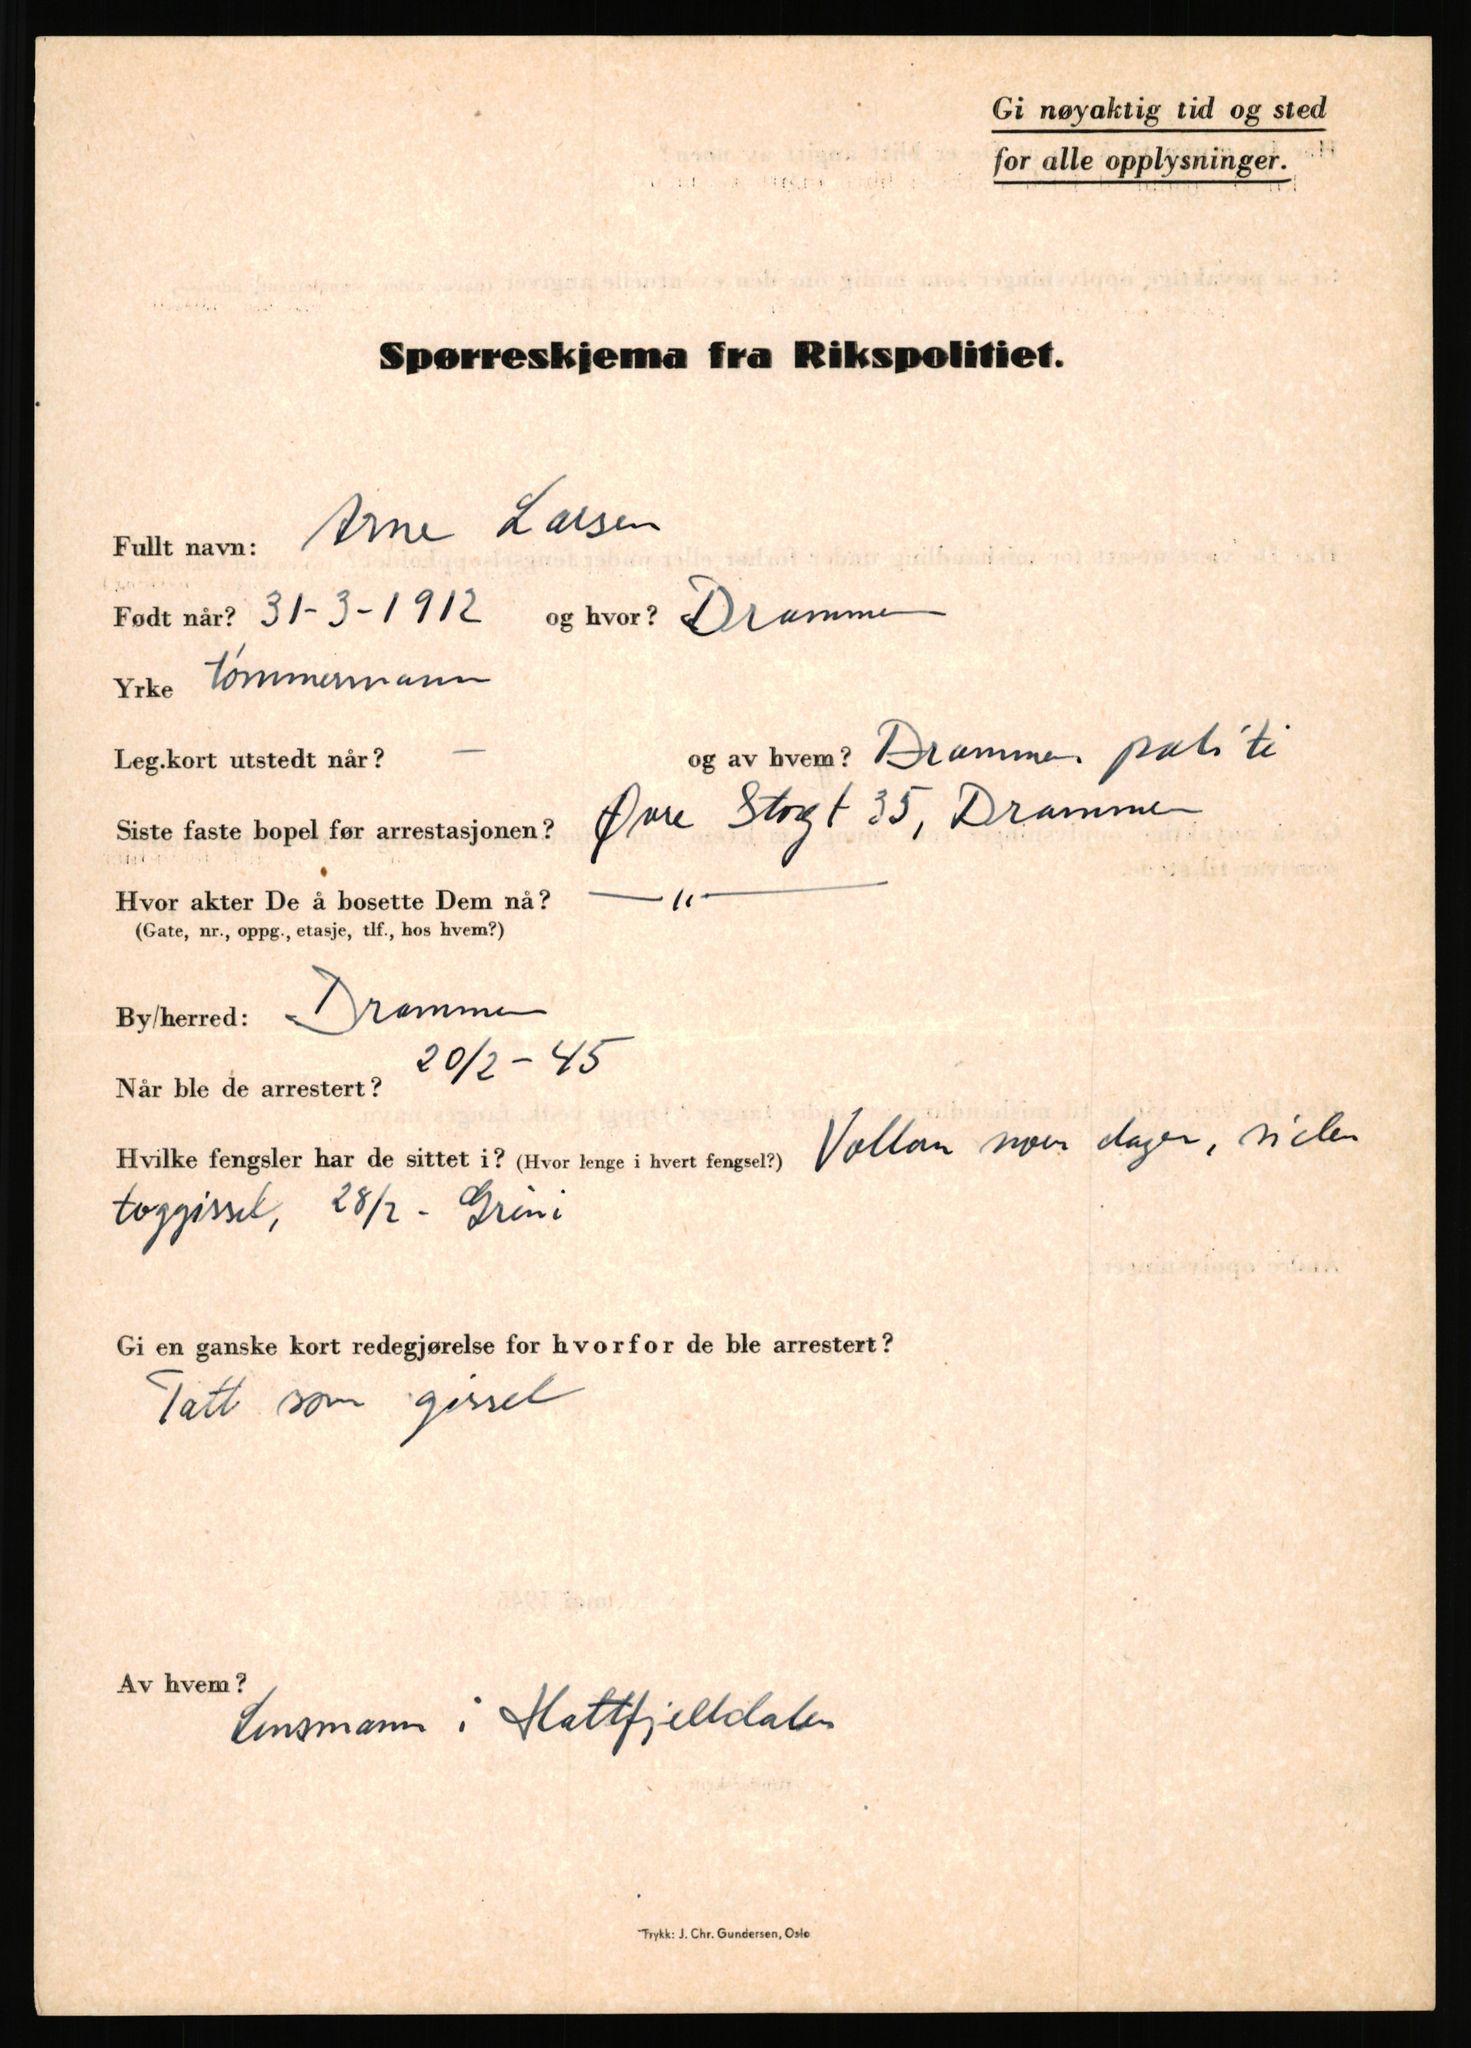 Gi nøyaktig tid og sted
for alle opplysninger.
Spørreskjema fra Rikspolitiet.
Fullt navn: Arne Larsen
Født når? 31-3-1912 og hvor? Drammen
Yrke tømmermann
Leg.kort utstedt når? — og av hvem? Drammen politi
Siste faste bopel før arrestasjonen? Øvre Storgt 35, Drammen
Hvor akter De å bosette Dem nå? — " —
(Gate, nr., oppg., etasje, tlf., hos hvem?)
By/herred: Drammen
Når ble de arrestert? 20/2-45
Hvilke fengsler har de sittet i? (Hvor lenge i hvert fengsel?) Vollan noen dager, siden
toggissel, 28/2 - Grini
Gi en ganske kort redegjørelse for hvorfor de ble arrestert?
Tatt som gissel
Av hvem?
Lensmann i Hattfjelldalen
Trykk: J. Chr. Gundersen, Oslo